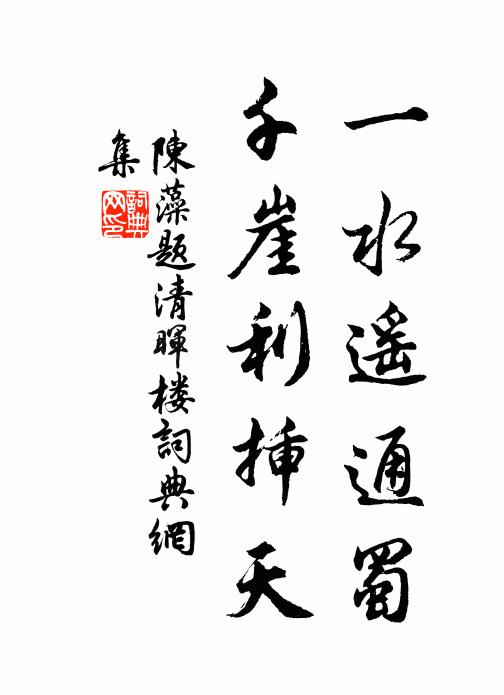 一水遥通蜀
千崖利揷天
陳藻题清暉楼詞典網
集
詞典网印